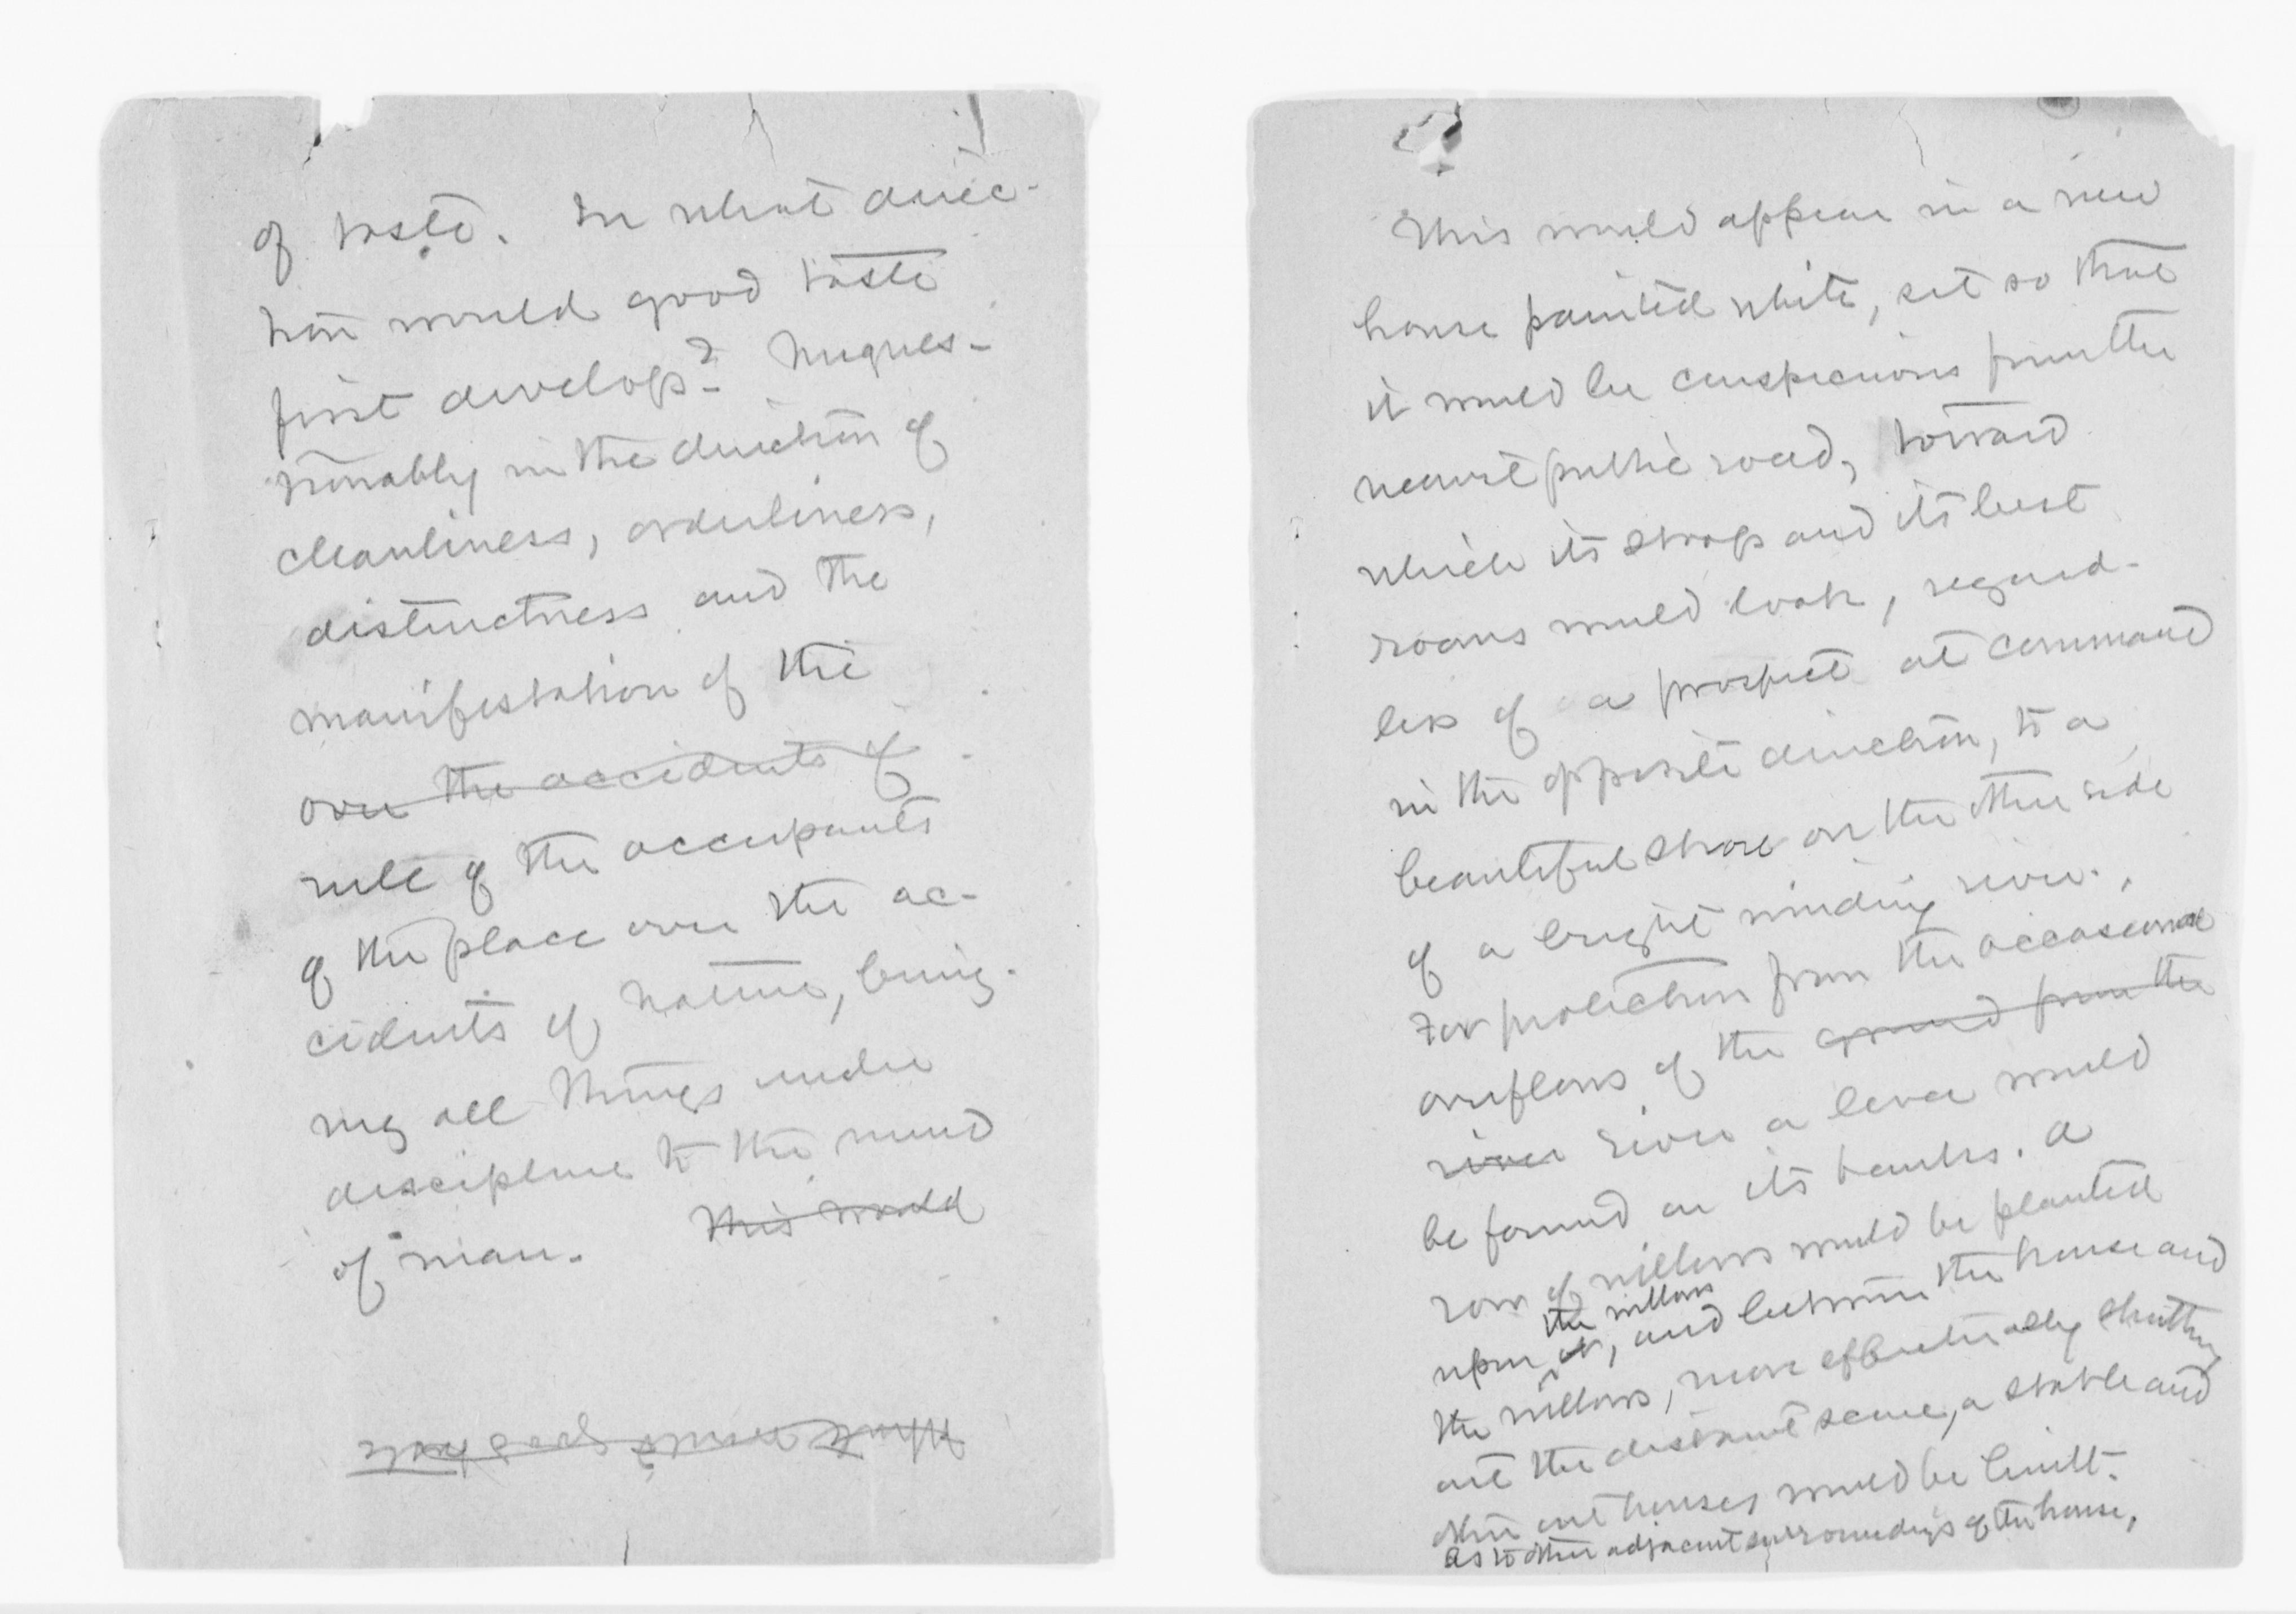 of taste. In what direc-
tion would good taste
first develop? Unques-
tionably in the direction of
cleanliness, orderliness,
distinctness and the
manifestation of the
over the accidents of
rule of the occupants
of the place over the ac-
cidents of nature, bring-
ing all things under
discipline to the mind
of man. This would
This would appear in a new
house painted white, set so that
it would be conspicuous from the
nearest public road, toward
which its stoop and its best
rooms would look, regard-
less of a prospect at command
in the opposite direction, to a
beautiful shore on the other side
of a bright winding river.
For protection from the occasional
overflows of the ground from the
river river a levee would
be formed on its banks. A
row of willows would be planted
the willows
upon it, and between the house and
the willows, more effectually shutting
out the distant scene, a stable and
other out houses would be built.
As to other adjacent surroundings of the house,